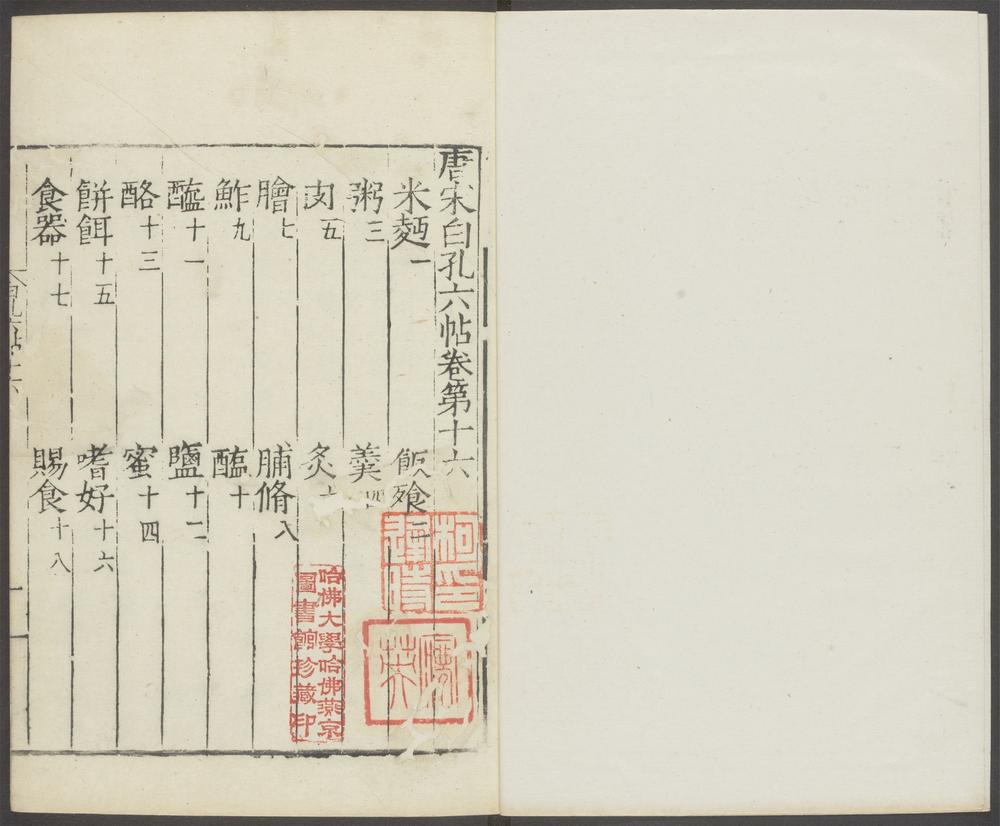 唐宋白孔六帖卷第十六
米麪一 飯飱二
粥三 羹四
肉五 炙六
膾七 脯脩八
鮓九 醢十
醯十一 鹽十二
酪十三 蜜十四
餅餌十五 嗜好十六
食器十七 賜食十八
哈佛大學哈佛燕京
圖書館珍藏印